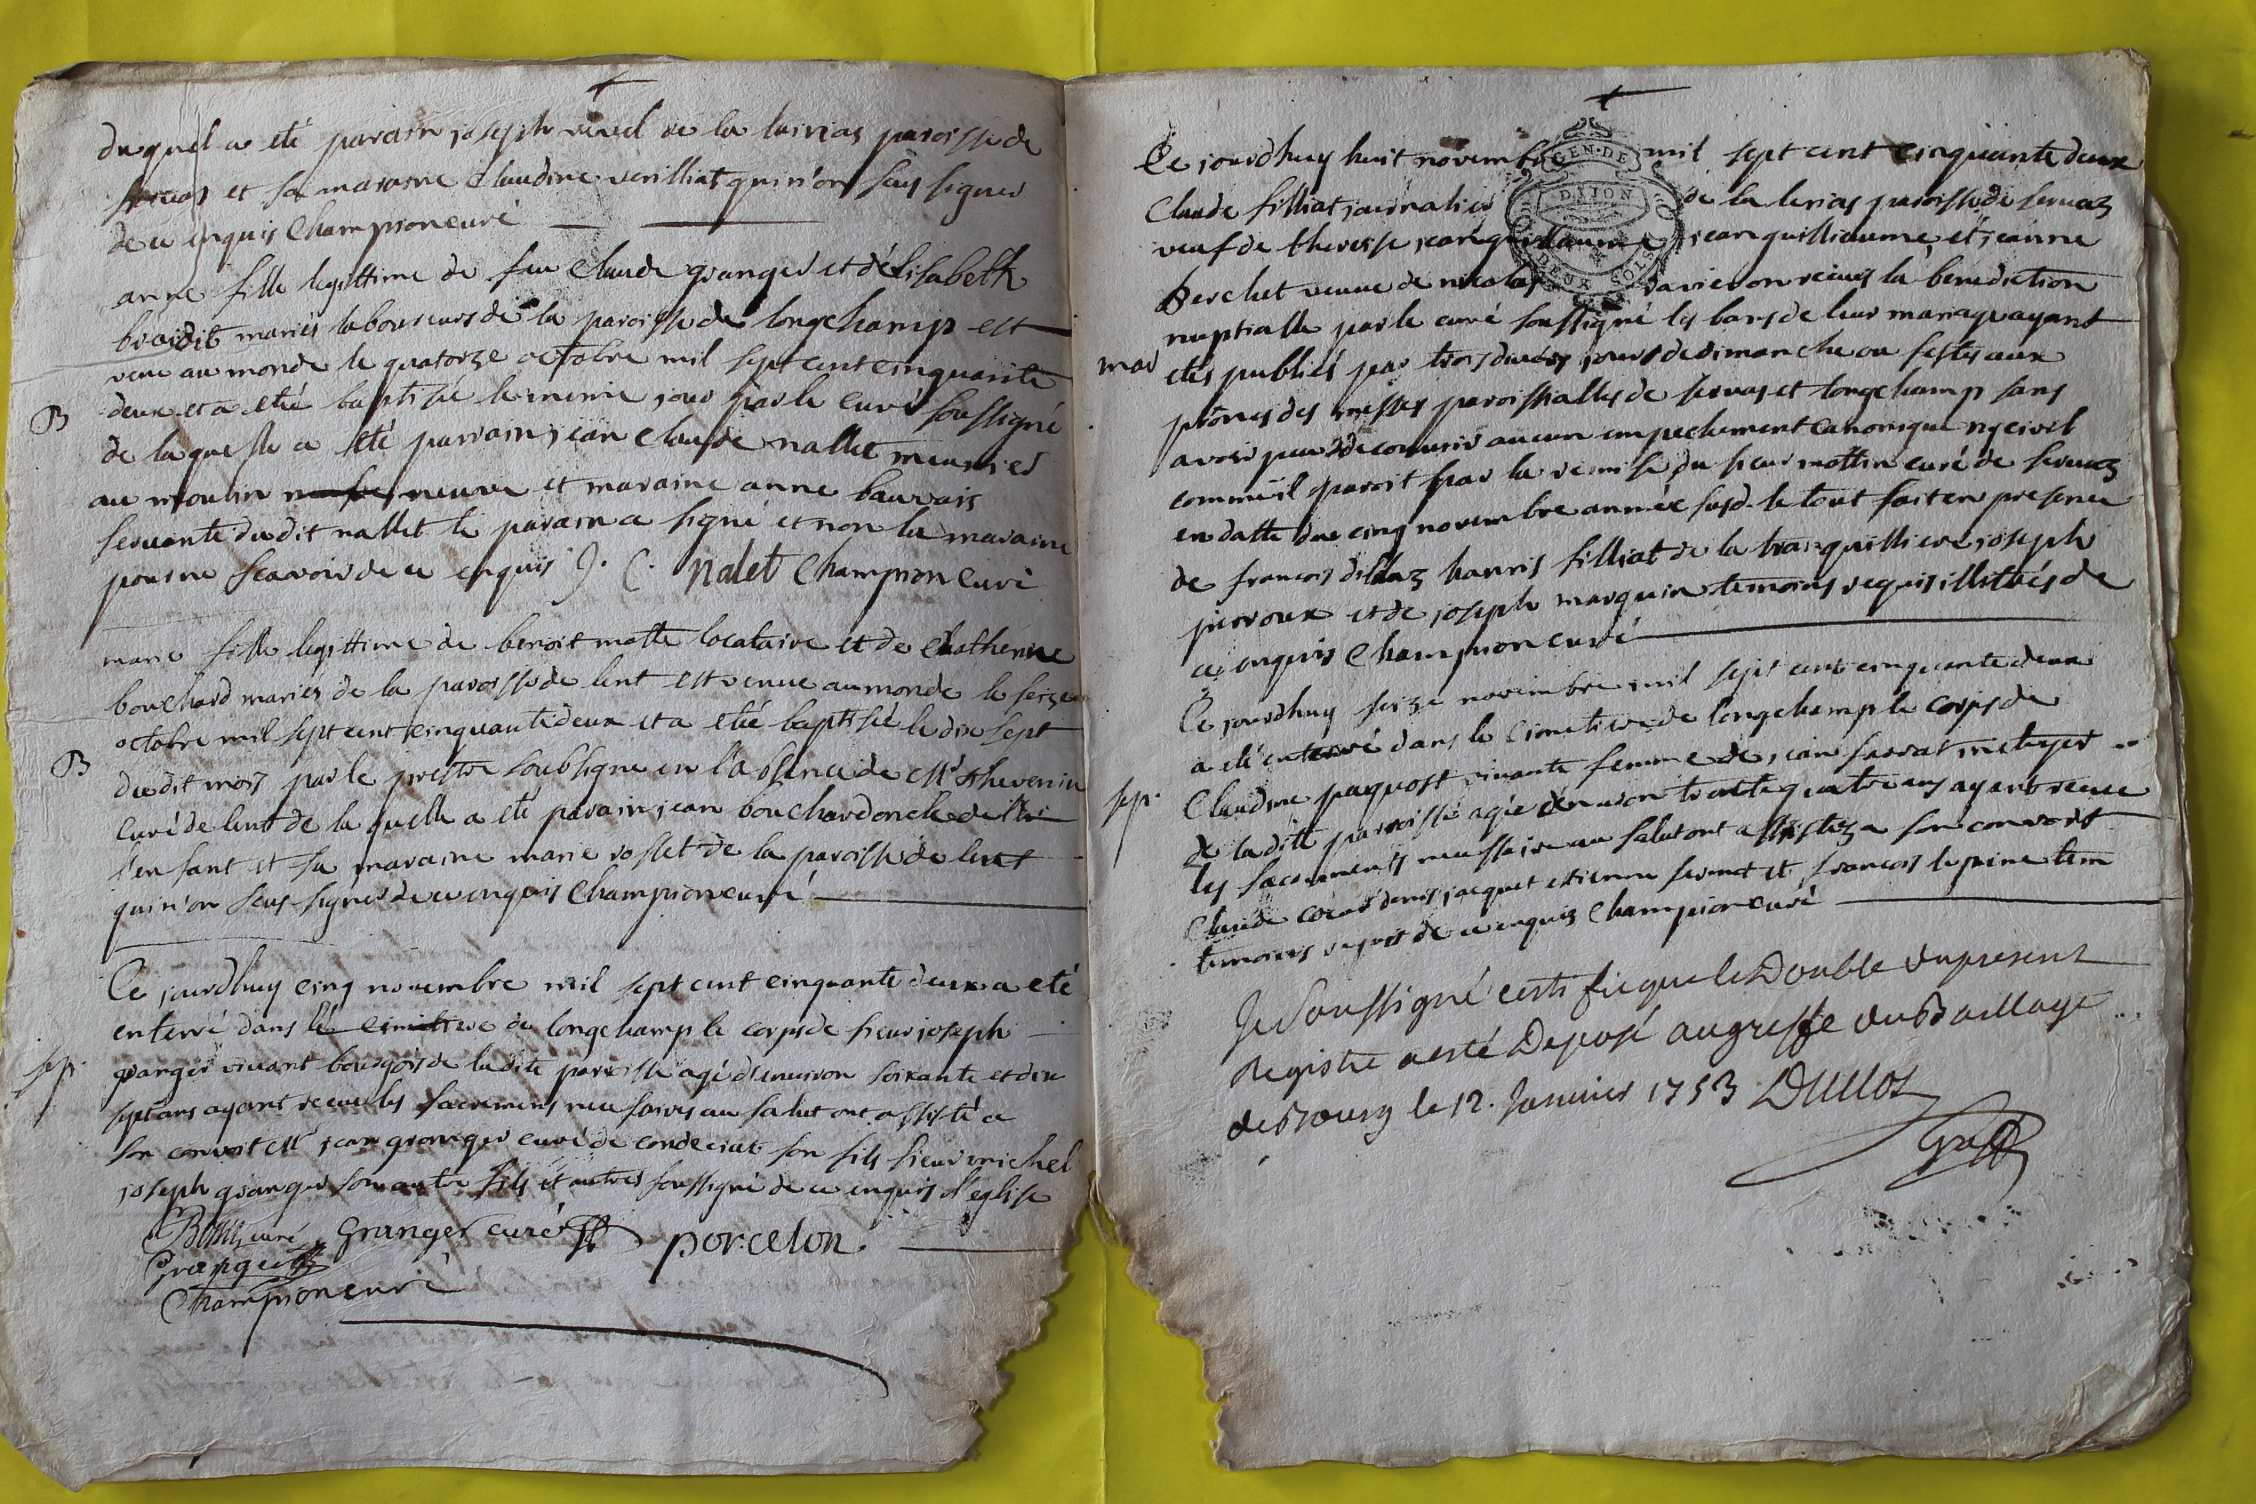 du quel a eté parain joseph de la paroisse de
servas et sa maraine Claudine qui n'on sçus signer
de ce enquis Champion curé
anne fille legittime de feu Claude granger et d'élisabeth
mariés laboureurs de la paroisse de longchamp est
venu au monde le quatorze octobre mil sept cent cinquante
B
deux et a etée baptisée le meme jour par le curé soussigné
de laquelle a eté parrain jean claude nallet meunier
au moulin neuve et maraine anne bauvais
servante du dit nallet le parain a signé et non la maraine
pour ne scavoir de ce enquis J. C. nalet Champion curé
marie fille legittime de benoit motte locataire et de Chatherine
bouchard mariés de la paroisse de lent est venue au monde le seize
octobre mil sept cent cinquante deux et a etée baptisée le dix sept
B
dudit mois par le prestre soubsigne en l'absence de Mr thevenin
curé de lent de la quelle a eté parain jean bouchard oncle de
l'enfant et sa maraine marie rosset de la paroisse de lent
qui n'on sçus signer de ce enquis Champion curé
Ce jourdhuy cinq novembre mil sept cent cinquante deux a eté
enterré dans le cimetiere de longchamp le corps de sieur joseph
sep.
granger vivant bourgois de la dite paroisse agé d'environ soixante et dix
sept ans ayant receu les sacremens necessaires au salut ont assisté a
son convoit Mr jean granger curé de condeciat son fils sieur michel
joseph granger son autre fils et autres soussigné de ce enquis l'eglise
curé granger curé porcelon
granger
Champion curé
Ce jourdhuy huit novembre mil sept cent cinquante deux
GEN. DE DIJON DEUX SOLS
Claude filliat journalier de la paroisse de servaz
veuf de theresse jeanguillaume jeanguilliaume et jeanne
Berchet veuve de nicolas on reçus la benediction
nuptialle par le curé soussigné les bans de leur mariage ayant
mar
etés publiés par trois divers jours de dimanche ou festes aux
prônes des messes paroissialles de servas et longchamp sans
avoir peu decouvrir aucun empechement canonique ny civil
comme il paroit par la remise du sieur mottin curé de servaz
en datte du cinq novembre année susd. le tout fait en presence
de francois filliat de la joseph
perroux et de joseph marguin temoins requis illitérés de
ce enquis Champion curé
Ce jourdhuy seize novembre mil sept cent cinquante deux
a eté enterré dans le cimetiere de longchamp le corps de
sep.
Claudine paquost vivante femme de jean farrat metayer
de la dite paroisse agée d'environ trente quatre ans ayant receue
les sacrements necessaire au salut ont assistez a son convoit
Claude denis jacquet estienne et francois
temoins requis de ce enquis Champion curé
Je soussigné certifie que le Double du present
Registre a esté Déposé au greffe du Baillage
de Bourg le 12. Janvier 1753 Duclos